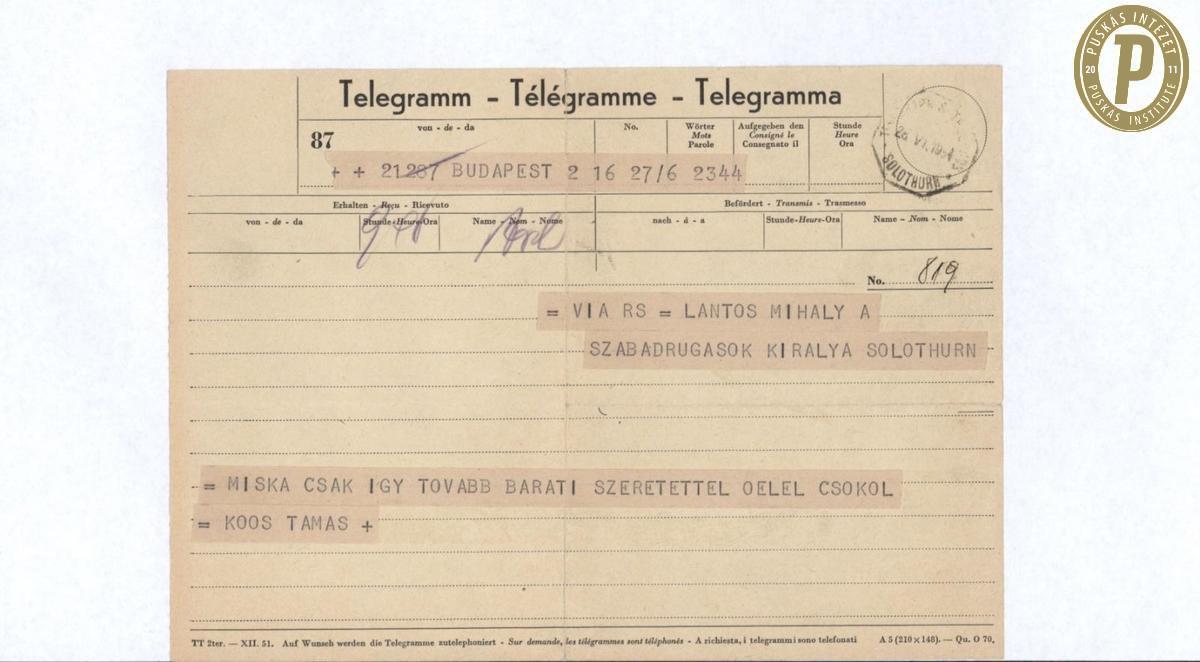 PUSKÁS INTÉZET
20 11
P
PUSKÁS INSTITUTE
Telegramm – Télégramme – Telegramma
87
von - de - da
No.
Wörter
Mots
Parole
Aufgegeben den
Consigné le
Consegnato il
Stunde
Heure
Ora
+ + 21287 BUDAPEST 2 16 27/6 2344
SOLOTHURN
Erhalten - Reçu - Ricevuto
Befördert - Transmis - Trasmesso
von - de - da
Stunde-Heure-Ora
Name - Nom - Nome
nach - à - a
Stunde-Heure-Ora
Name - Nom - Nome
No. 819
= VIA RS = LANTOS MIHALY A
SZABADRUGASOK KIRALYA SOLOTHURN
= MISKA CSAK IGY TOVABB BARATI SZERETETTEL OELEL CSOKOL
= KOOS TAMAS +
TT 2ter. — XII. 51. Auf Wunsch werden die Telegramme zutelephoniert - Sur demande, les télégrammes sont téléphonés - A richiesta, i telegrammi sono telefonati A 5 (210×148). — Qu. O 70.